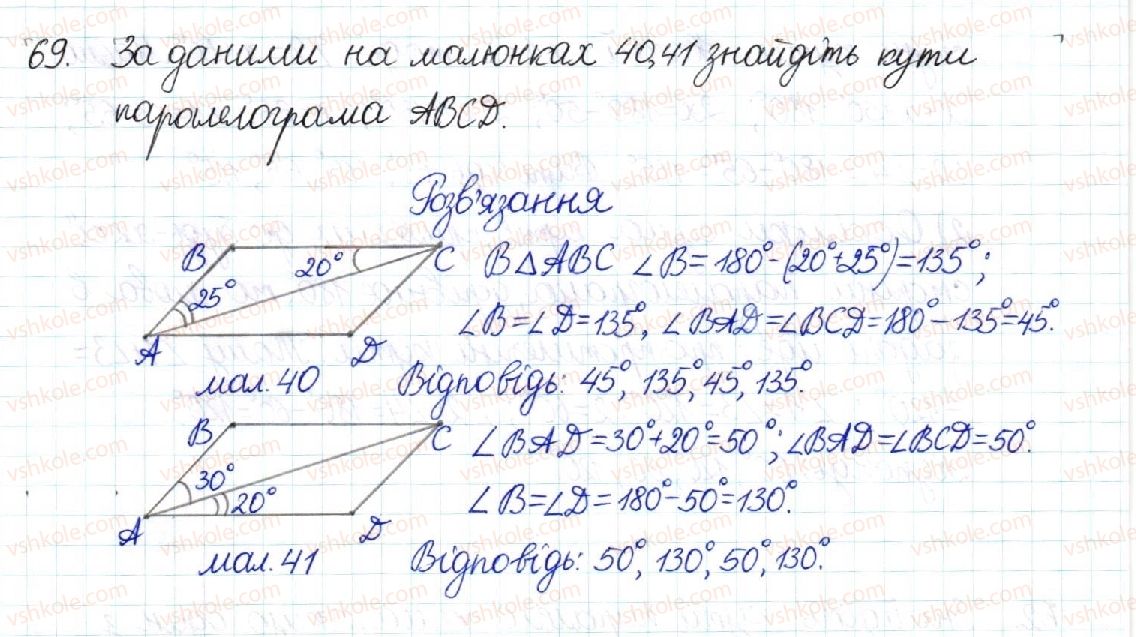 69. За даними на малюнках 40,41 знайдіть кути
паралелограма ABCD.
Розв'язання
B
20°
C
25°
A
D
мал. 40
В △ABC ∠B = 180° - (20°+25°) = 135°;
∠B = ∠D = 135°, ∠BAD = ∠BCD = 180° - 135° = 45°.
Відповідь: 45°, 135°, 45°, 135°.
B
C
30°
20°
A
D
мал. 41
∠BAD = 30°+20° = 50°; ∠BAD = ∠BCD = 50°.
∠B = ∠D = 180° - 50° = 130°.
Відповідь: 50°, 130°, 50°, 130°.
vshkole.com